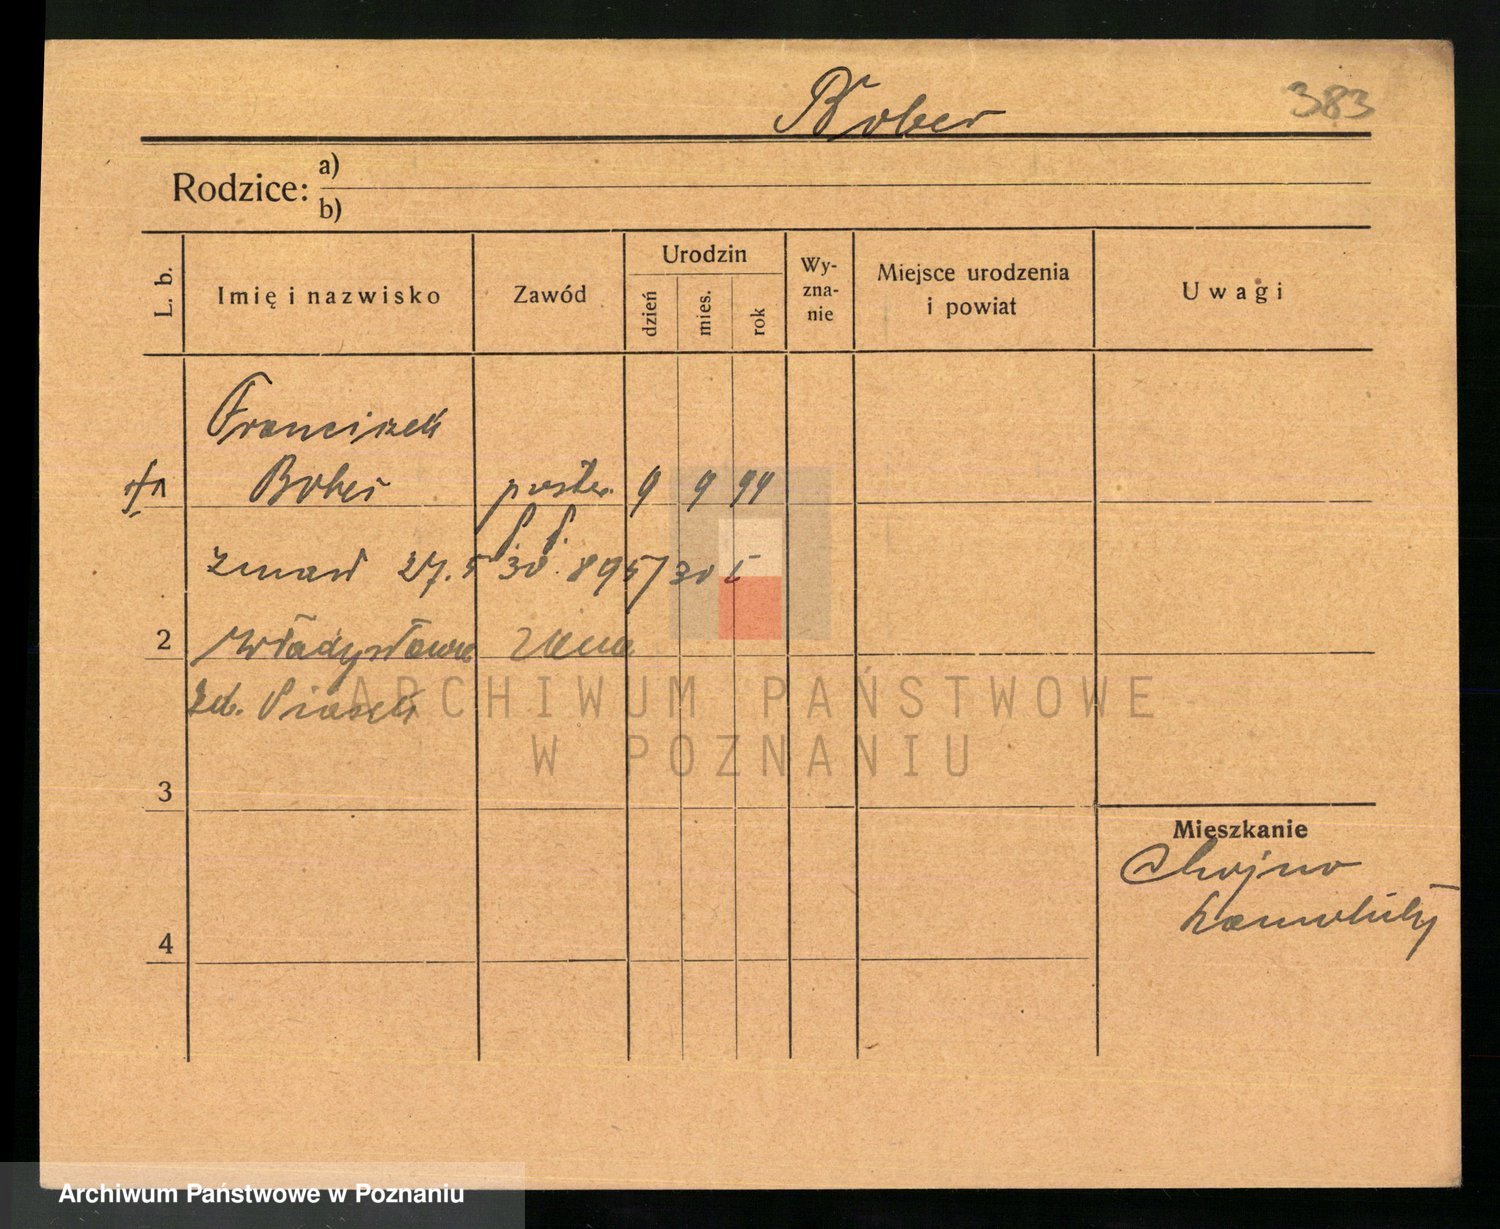 Bober 383
Rodzice: a)
b)
L. b. Imię i nazwisko Zawód Urodzin dzień mies. rok Wy-zna-nie Miejsce urodzenia i powiat Uwagi
Franciszek
1 Bober poster. 9 9 94
P. P.
zmarł 27.5 30. 895/30
2 Władysława żona
zd. Piasek
ARCHIWUM PAŃSTWOWE
W POZNANIU
3
Mieszkanie
Chojno
4
Archiwum Państwowe w Poznaniu